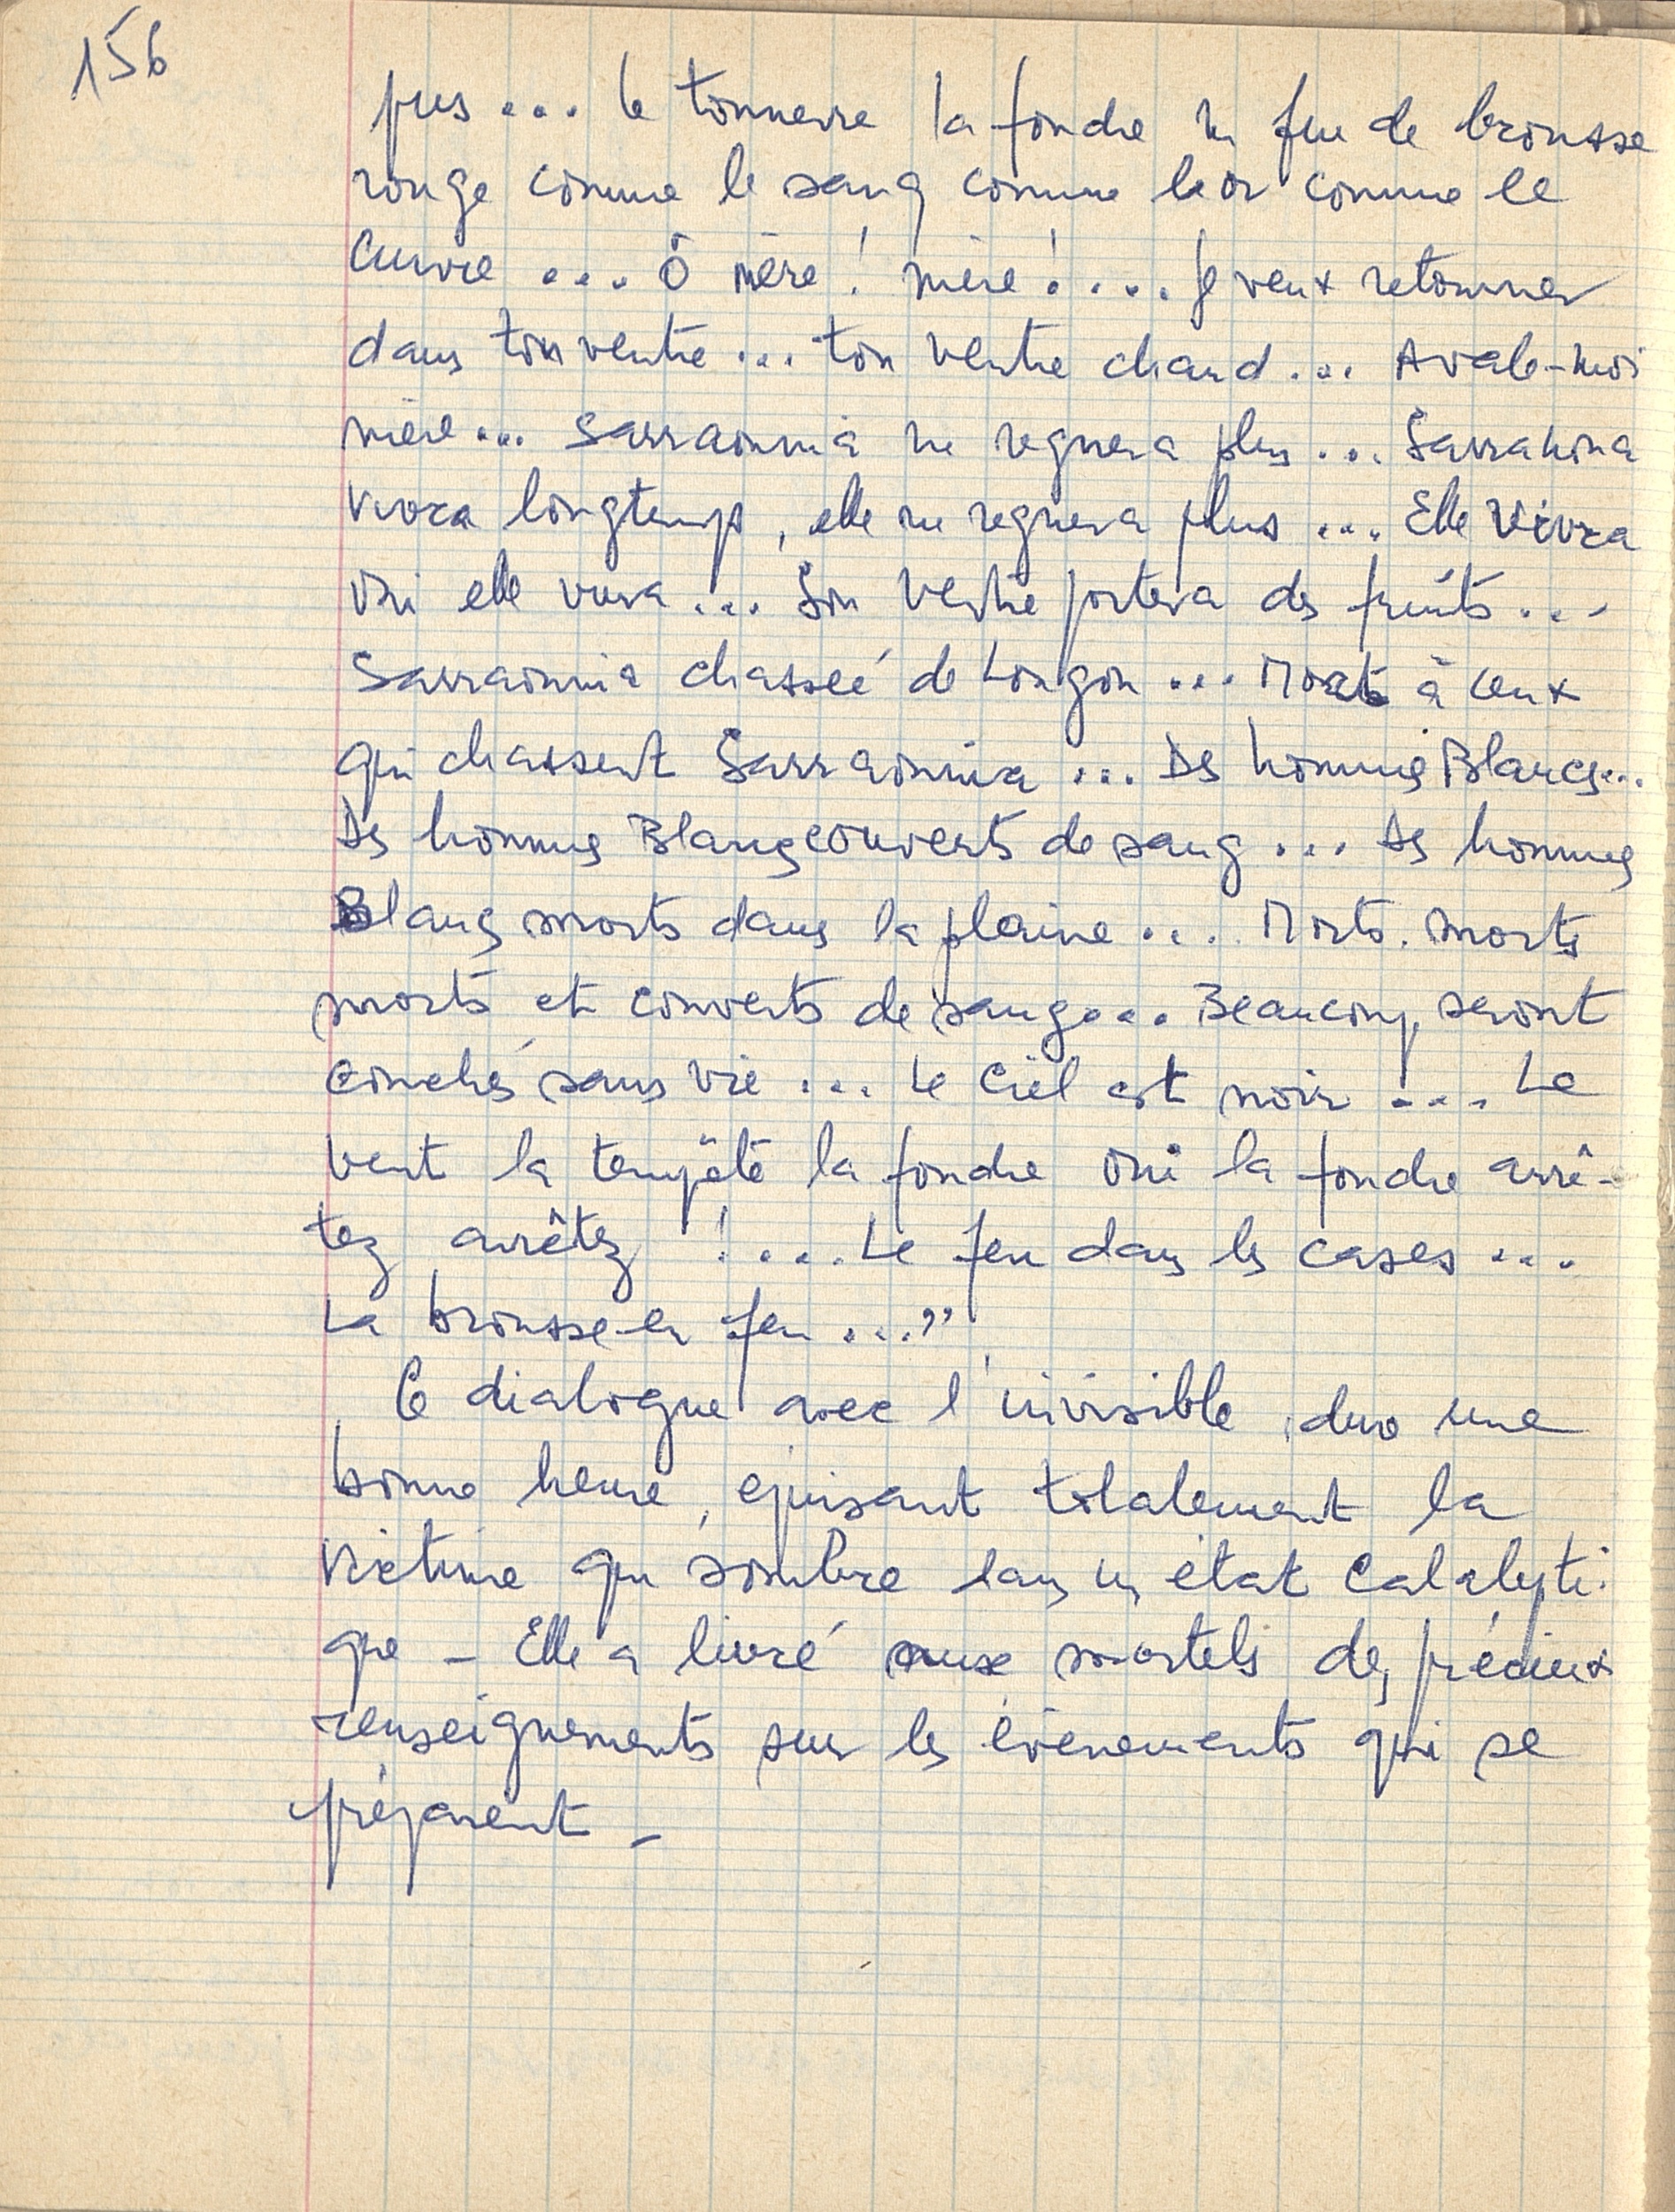 156
pus... le tonnerre la foudre un feu de brousse
rouge comme le sang comme l'or comme le
cuivre .... Ô mère ! mère ! .... Je veux retourner
dans ton ventre ... ton ventre chaud ... Avale-moi
mère ... Sarraounia ne regnera plus ... Sarraounia
vivra longtemps, elle ne regnera plus ... Elle vivra
oui elle vivra ... Son ventre portera des fruits ...
Sarraounia chassée de Lougou ... Mort à ceux
qui chassent Sarraounia ... Des hommes Blancs ...
Des hommes Blancs couverts de sang ... des hommes
Blancs morts dans la plaine .... Morts. morts
morts et couverts de sang ... Beaucoup seront
couchés sans vie ... Le ciel est noir .... Le
vent la tempête la foudre oui la foudre arrê-
tez arrêtez ! .... Le feu dans les cases ...
La brousse en feu ..."
Ce dialogue avec l'invisible dura une
bonne heure, epuisant totalement la
victime qui sombre dans un état catalepti-
que - Elle a livré aux mortels des précieux
renseignements sur les évènements qui se
préparent -